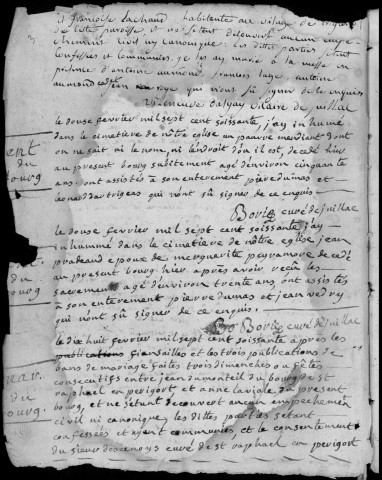 et françoise Lachaud habitente au village de
de cette paroisse et ne s'etant decouvert aucun empe
chement civil ny canonique les dittes parties s'etant
confessées et communiées je les ay marié a la messe en
presence d'antoine françois laye, antoine
qui n'ont sçu signer de ce enquis
Villeneuve vicaire de juillac
le douse fevrier mil sept cent soissante j'ay inhumé
dans le cimetiere de nôtre eglise un pauvre mendiant dont
on ne sait ni le nom, ni l'endroit d'ou il est, decedé hier
au present bourg subitement agé d'environ cinquante
ans ont assistés a son enterement pierre dumas et
leonard dartrigeas qui n'ont sû signer de ce enquis
Borie curé de juillac
le douse fevrier mil sept cent soissante j'ay
inhummé dans le cimetiere de nôtre eglise, jean
pradeaud epoux de merguerite peyramore decedé
au present bourg hier après avoir reçu les
sacrements agé d'environ trente ans ont assistés
a son enterement pierre dumas et jean vedry
qui n'ont sû signer de ce enquis.
Borie curé de juillac
le dix huit fevrier mil sept cent soissante après les
publications fiansailles et les trois publications de
bans de mariage faites trois dimanches ou fêtes
consecutifs entre jean dumonteil du bourg de st
raphael en perigort et anne laviale du present
bourg, et ne s'etant decouvert aucun empechement
civil ni canonique les dittes parties s'etant
confessées et ayent communiés, et le consentement
du sieur curé de st raphaël en perigort
ent
du
bourg
du
bourg
mar.
du
bourg.